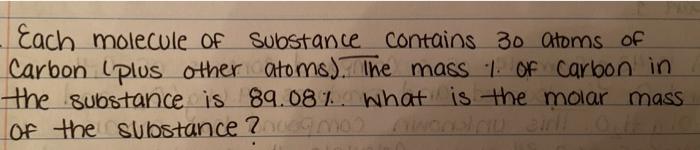 Each molecule of substance contains 30 atoms of
Carbon (plus other atoms). The mass % of carbon in
the substance is 89.08%. What is the molar mass
of the substance?